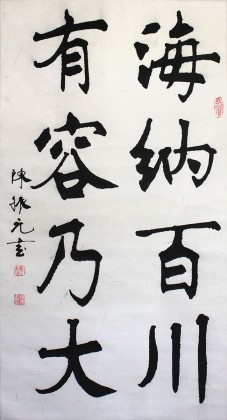 海納百川
有容乃大
陳振元書